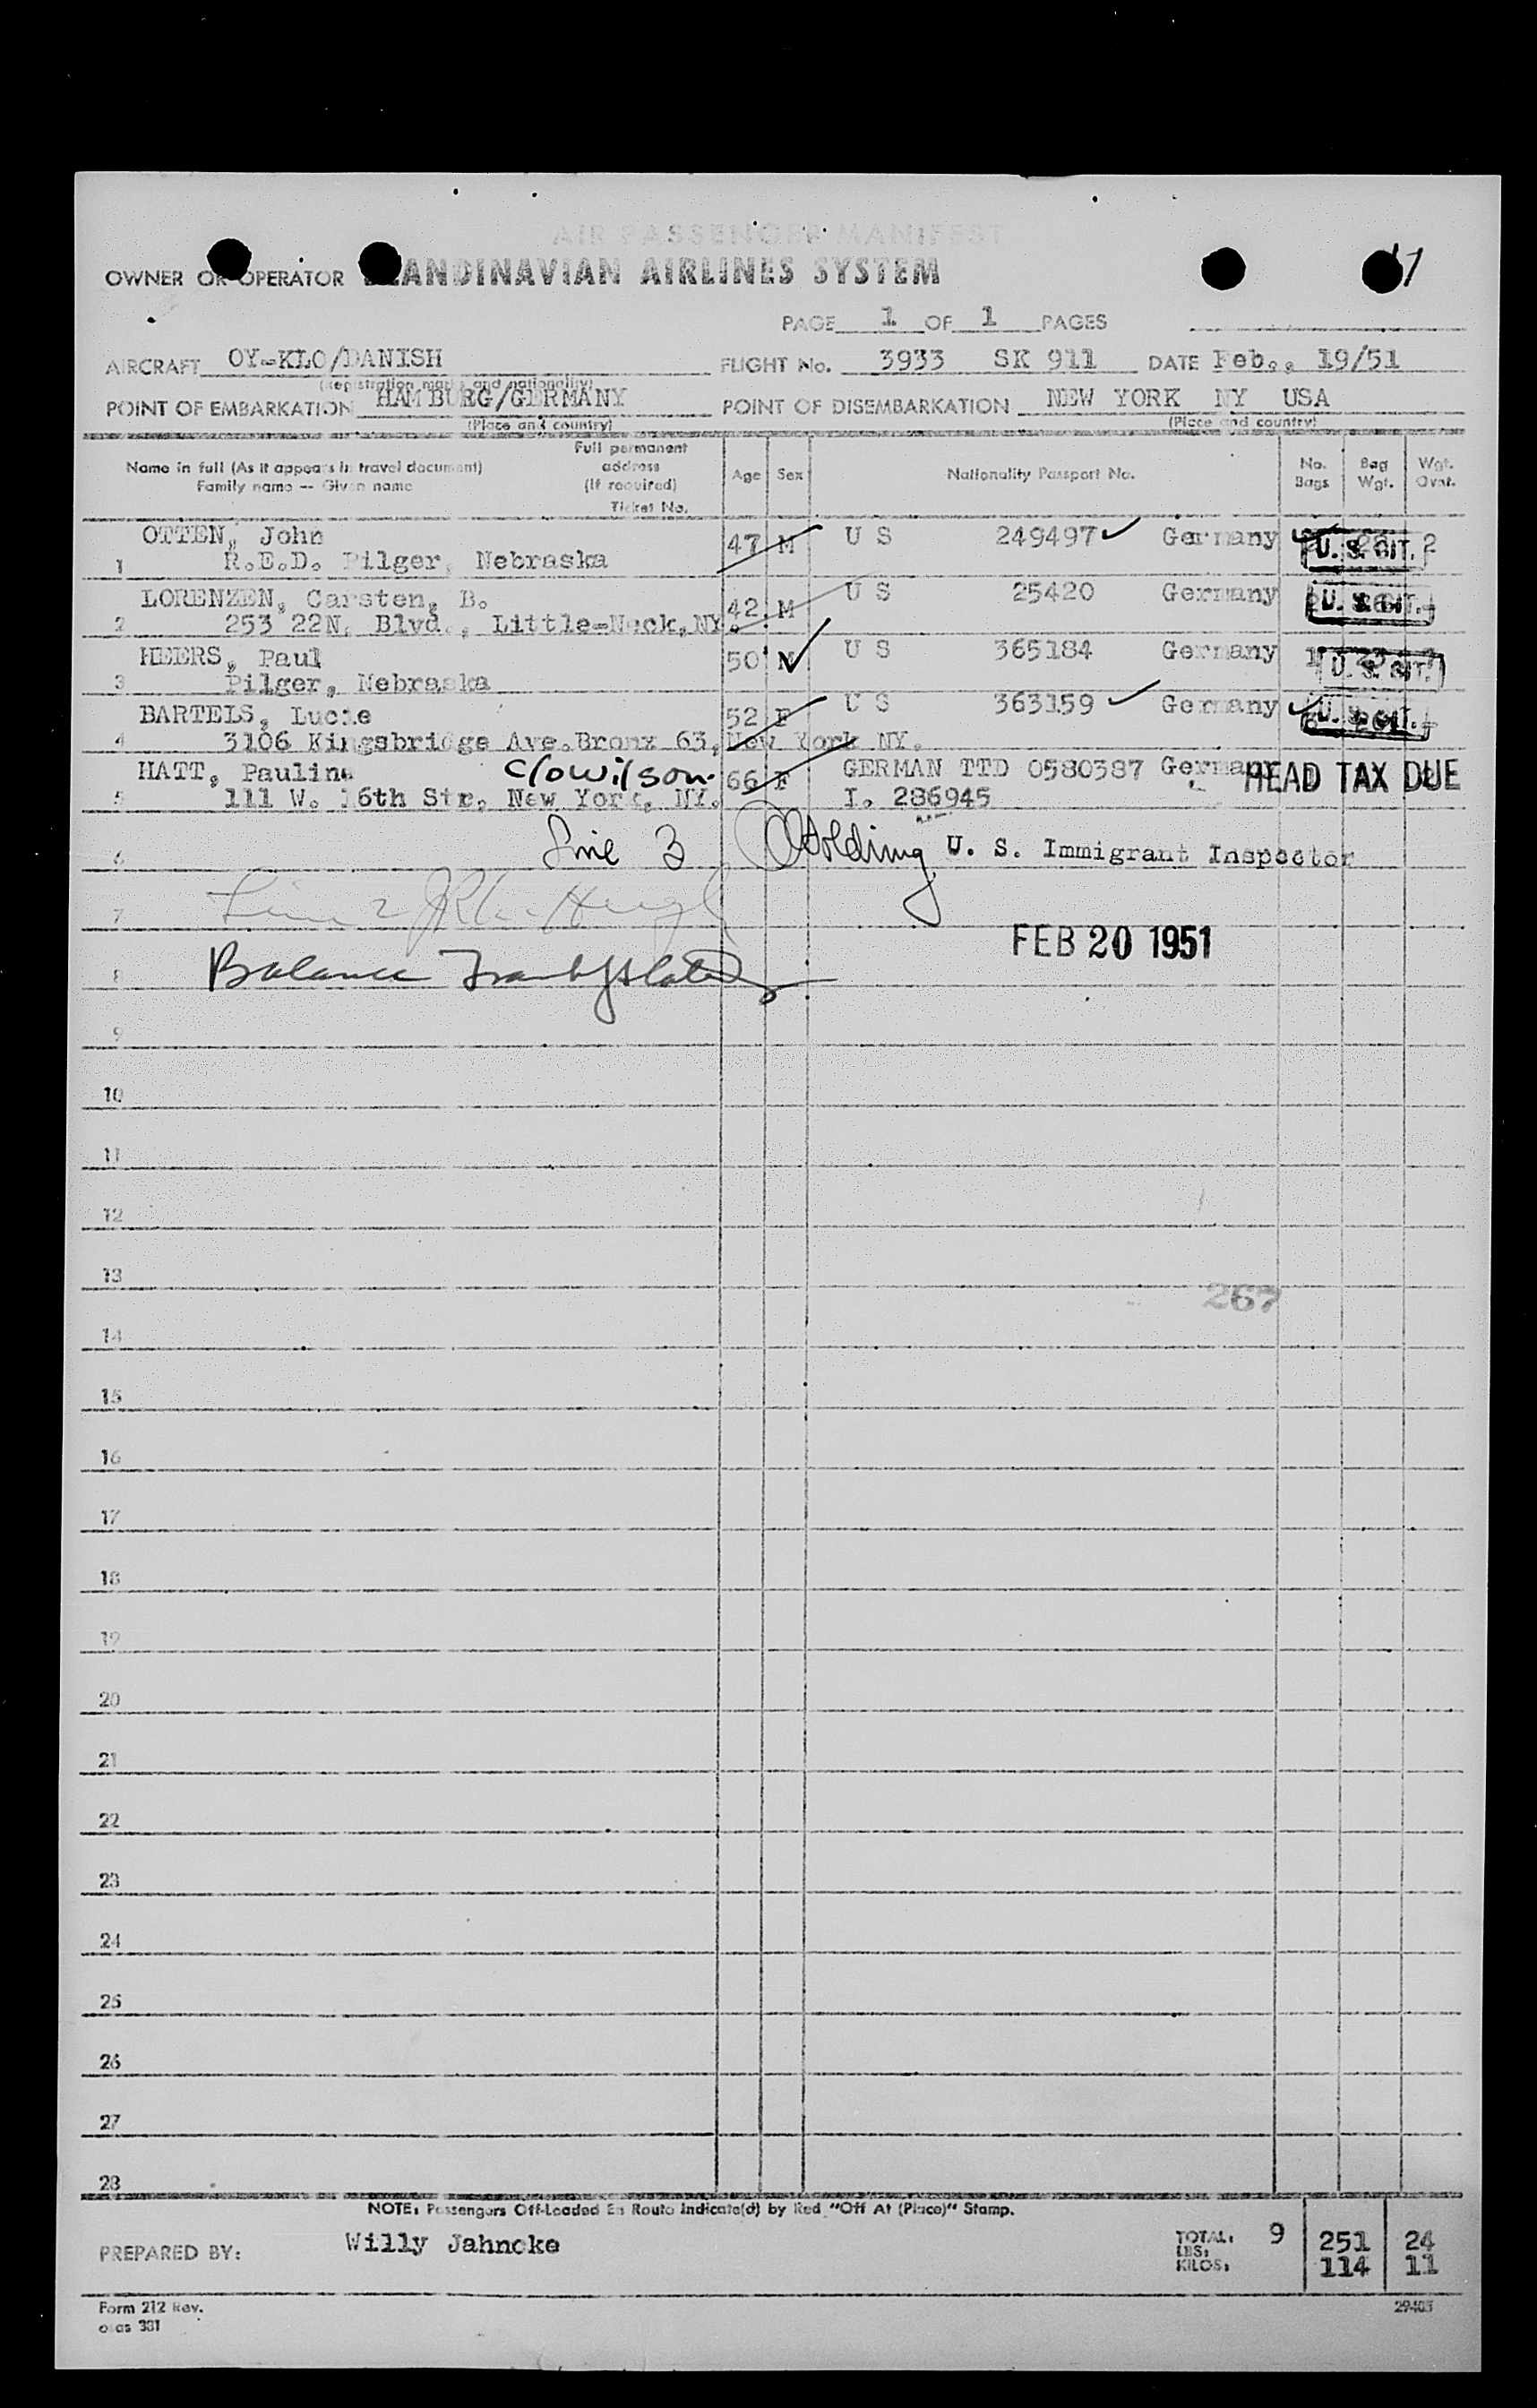 AIR PASSENGER MANIFEST
OWNER OR OPERATOR SCANDINAVIAN AIRLINES SYSTEM
PAGE 1 OF 1 PAGES
AIRCRAFT OY-KLO/DANISH FLIGHT No. 3933 SK 911 DATE Feb., 19/51
(Registration marks and nationality)
POINT OF EMBARKATION HAMBURG/GERMANY POINT OF DISEMBARKATION NEW YORK NY USA
(Place and country) (Place and country)
Name in full (As it appears in travel document) Full permanent address (If required) Age Sex Nationality Passport No. No. Bags Bag Wgt. Wgt. Ovnt.
Family name -- Given name Ticket No.
OTTEN, John 47 M U S 249497 Germany U. S. CIT. 2
1 R.E.D. Pilger, Nebraska
LORENZEN, Carsten, B. 42 M U S 25420 Germany U. S. CIT.
2 253 22N. Blvd., Little-Neck, NY.
HEERS, Paul 50 M U S 365184 Germany 1 U. S. CIT.
3 Pilger, Nebraska
BARTELS, Lucie 52 F U S 363159 Germany U. S. CIT.
4 3106 Kingsbridge Ave. Bronx 63, New York NY.
HATT, Pauline c/o Wilson. 66 F GERMAN TTD 0580387 Germany HEAD TAX DUE
5 111 W. 16th Str, New York, NY. I. 286945
6 Line 3 Holding U. S. Immigrant Inspector
7 Line 2
FEB 20 1951
8 Balance
9
10
11
12
13
267
14
15
16
17
18
19
20
21
22
23
24
25
26
27
28
NOTE: Passengers Off-Loaded En Route Indicate(d) by Red "Off At (Place)" Stamp.
PREPARED BY: Willy Jahncke TOTAL: 9
LBS: 251 24
KILOS: 114 11
Form 212 Rev. 29403